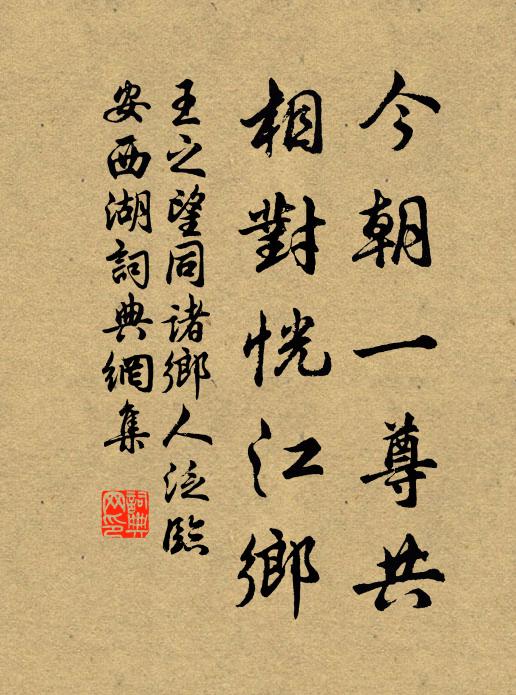 今朝一尊共
相對恍江鄉
王之望同諸鄉人泛臨
安西湖詞典網集
詞典
网印